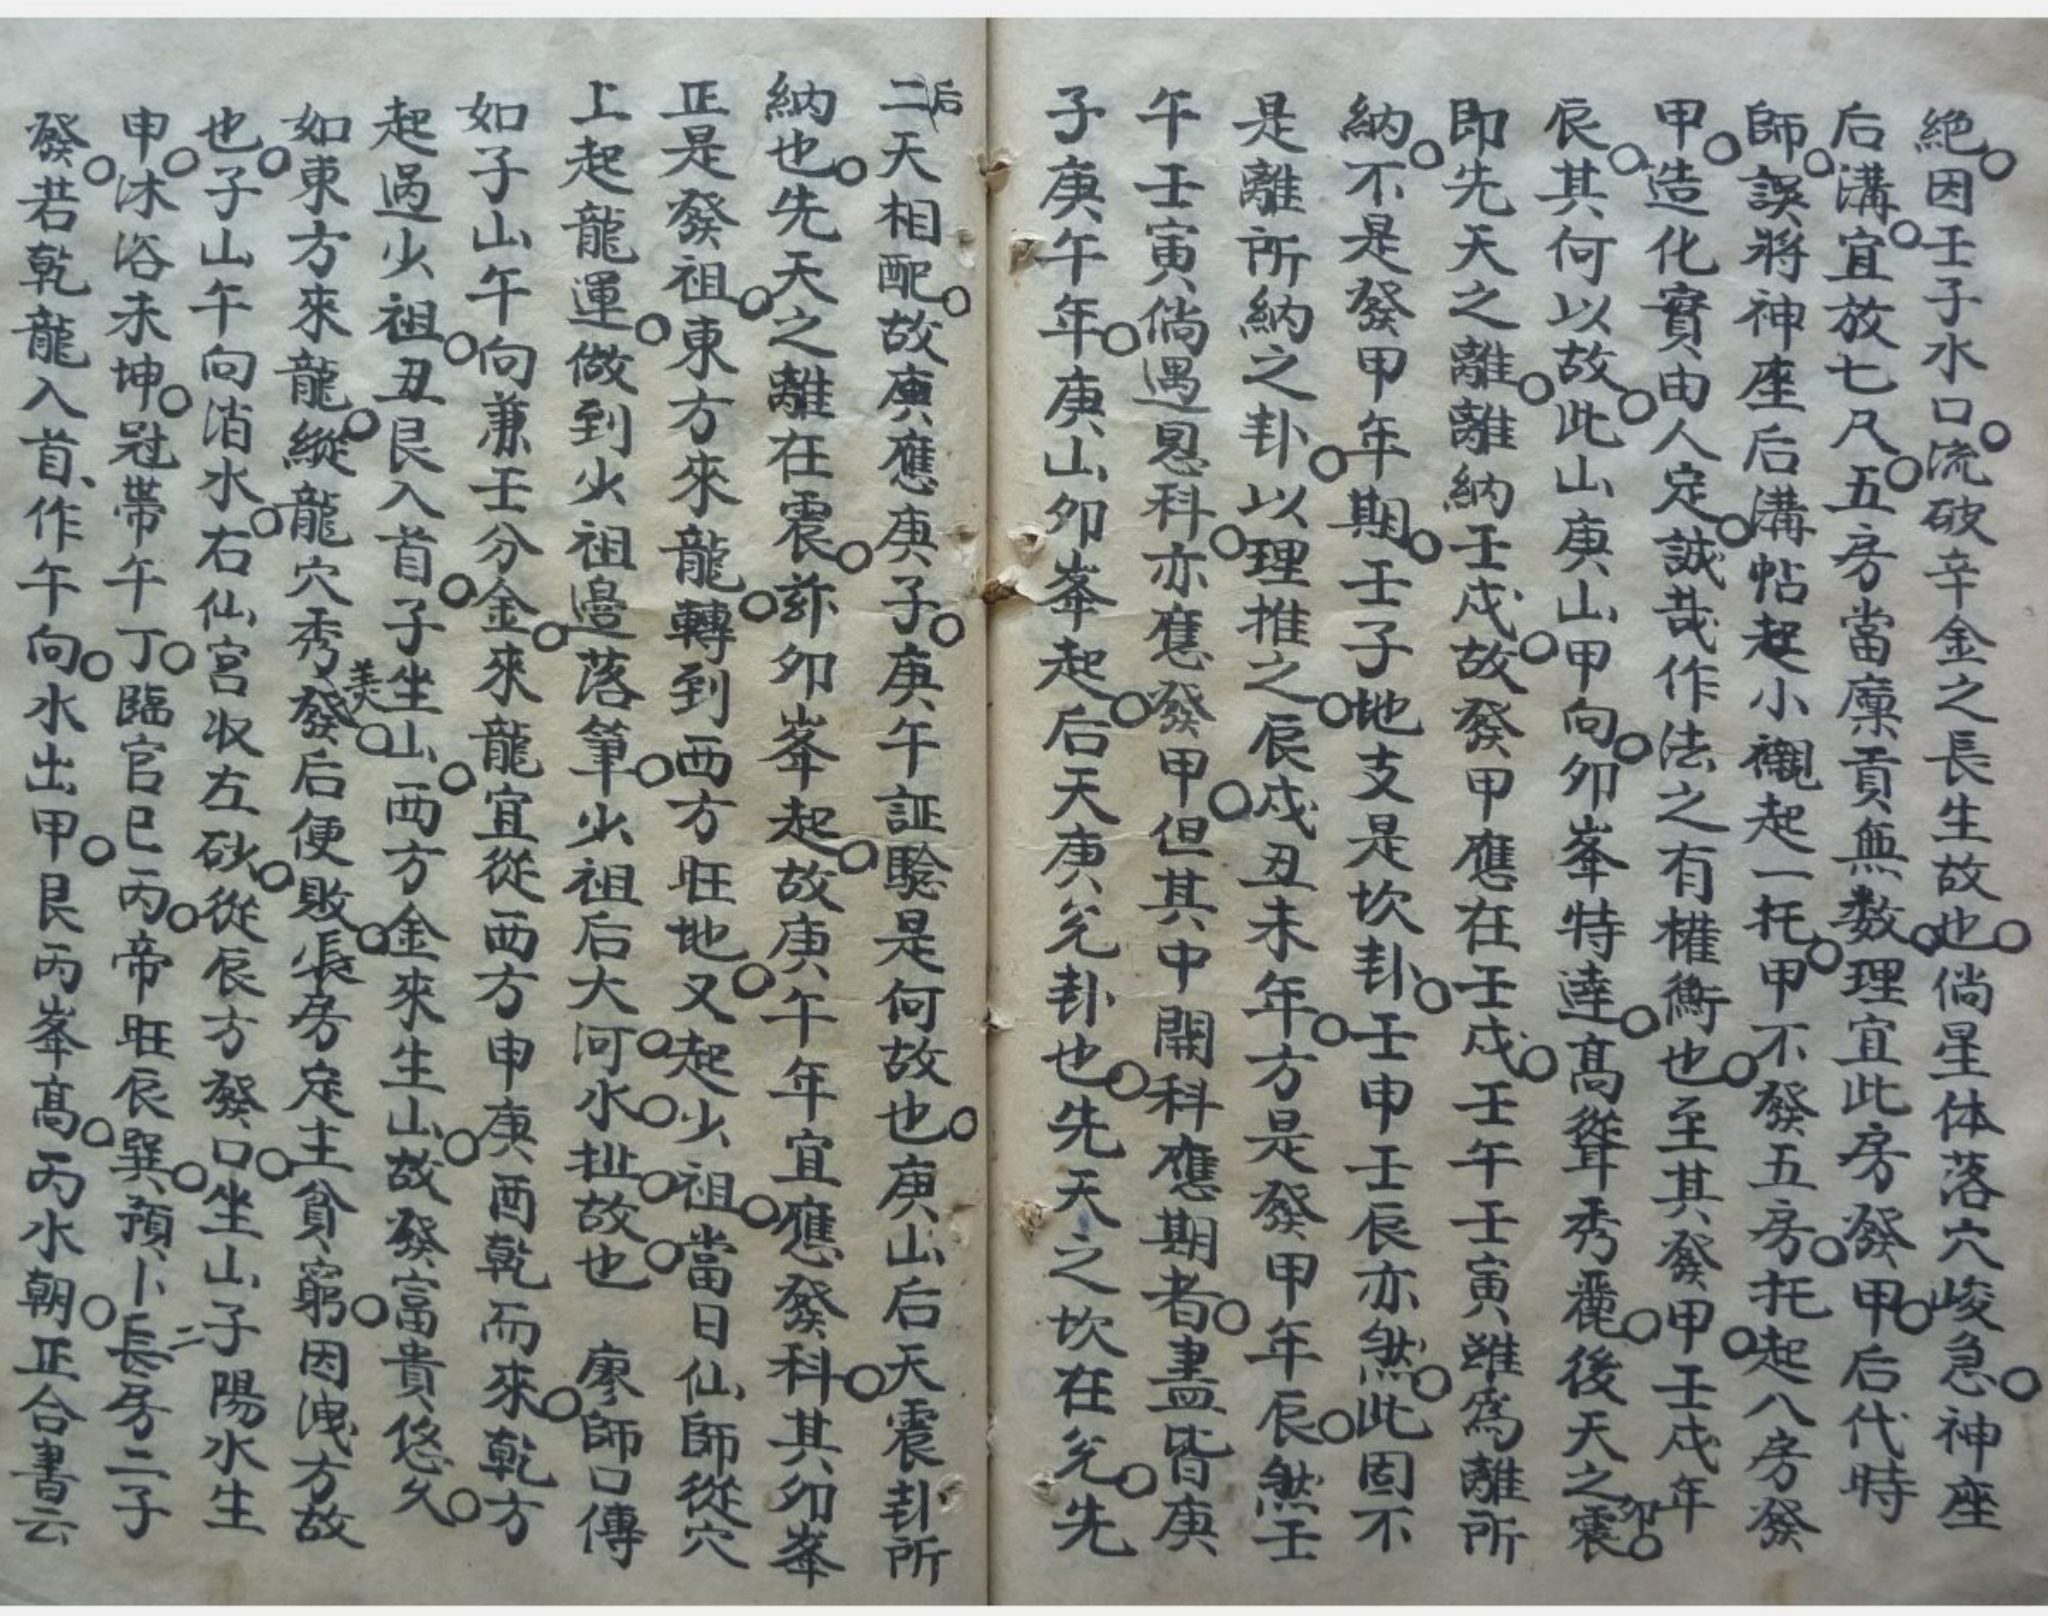 絕○因壬子水口○流破辛金之長生故也○倘星体落穴峻急○神座
后溝○宜放七尺○五房當廩貢無数○理宜此房發甲○后代時
師○誤將神座后溝帖起小襯起一托○甲不發五房○托起八房發
甲○造化實由人定○誠哉作法之有權衡也○至其發甲○壬戌年
辰○其何以故○此山庚山甲向○卯峯特達○高聳秀麗○後天之震卯○
即先天之離○離納壬戌○故發甲應在壬戌○壬午壬寅雖為離所
納○不是發甲年期○壬子地支是坎卦○壬申壬辰亦然○此固不
是離所納之卦○以理推之○辰戌丑未年○方是發甲年辰○然壬
午壬寅倘遇恩科○亦應發甲○但其中開科應期者○盡皆庚
子庚午年○庚山卯峯起○后天庚兌卦也○先天之坎在兌○先
二后天相配○故庚應庚子○庚午証驗是何故也○庚山后天震卦所
納也○先天之離在震○茲卯峯起○故庚午年宜應發科○其卯峯
正是發祖○東方來龍○轉到西方旺地○又起少祖○當日仙師從穴
上起龍運○做到少祖邊落筆○少祖后大河○水扯○故也○ 廖師口傳
如子山午向兼壬分金○來龍宜從西方申庚酉乾而來○乾方
起過少祖○丑艮入首○子坐山○西方金來生山○故發富貴悠久○
如東方來龍○縱龍穴秀美○發后便敗○長房定主貧窮○因洩方故
也○子山午向消水○右仙宮収左砂○從辰方發口○坐山子陽水生
申○沐浴未坤○冠帶午丁○臨官巳丙○帝旺辰巽○預卜長二房二子
發○若乾龍入首、作午向○水出甲○艮丙峯高○丙水朝○正合書云